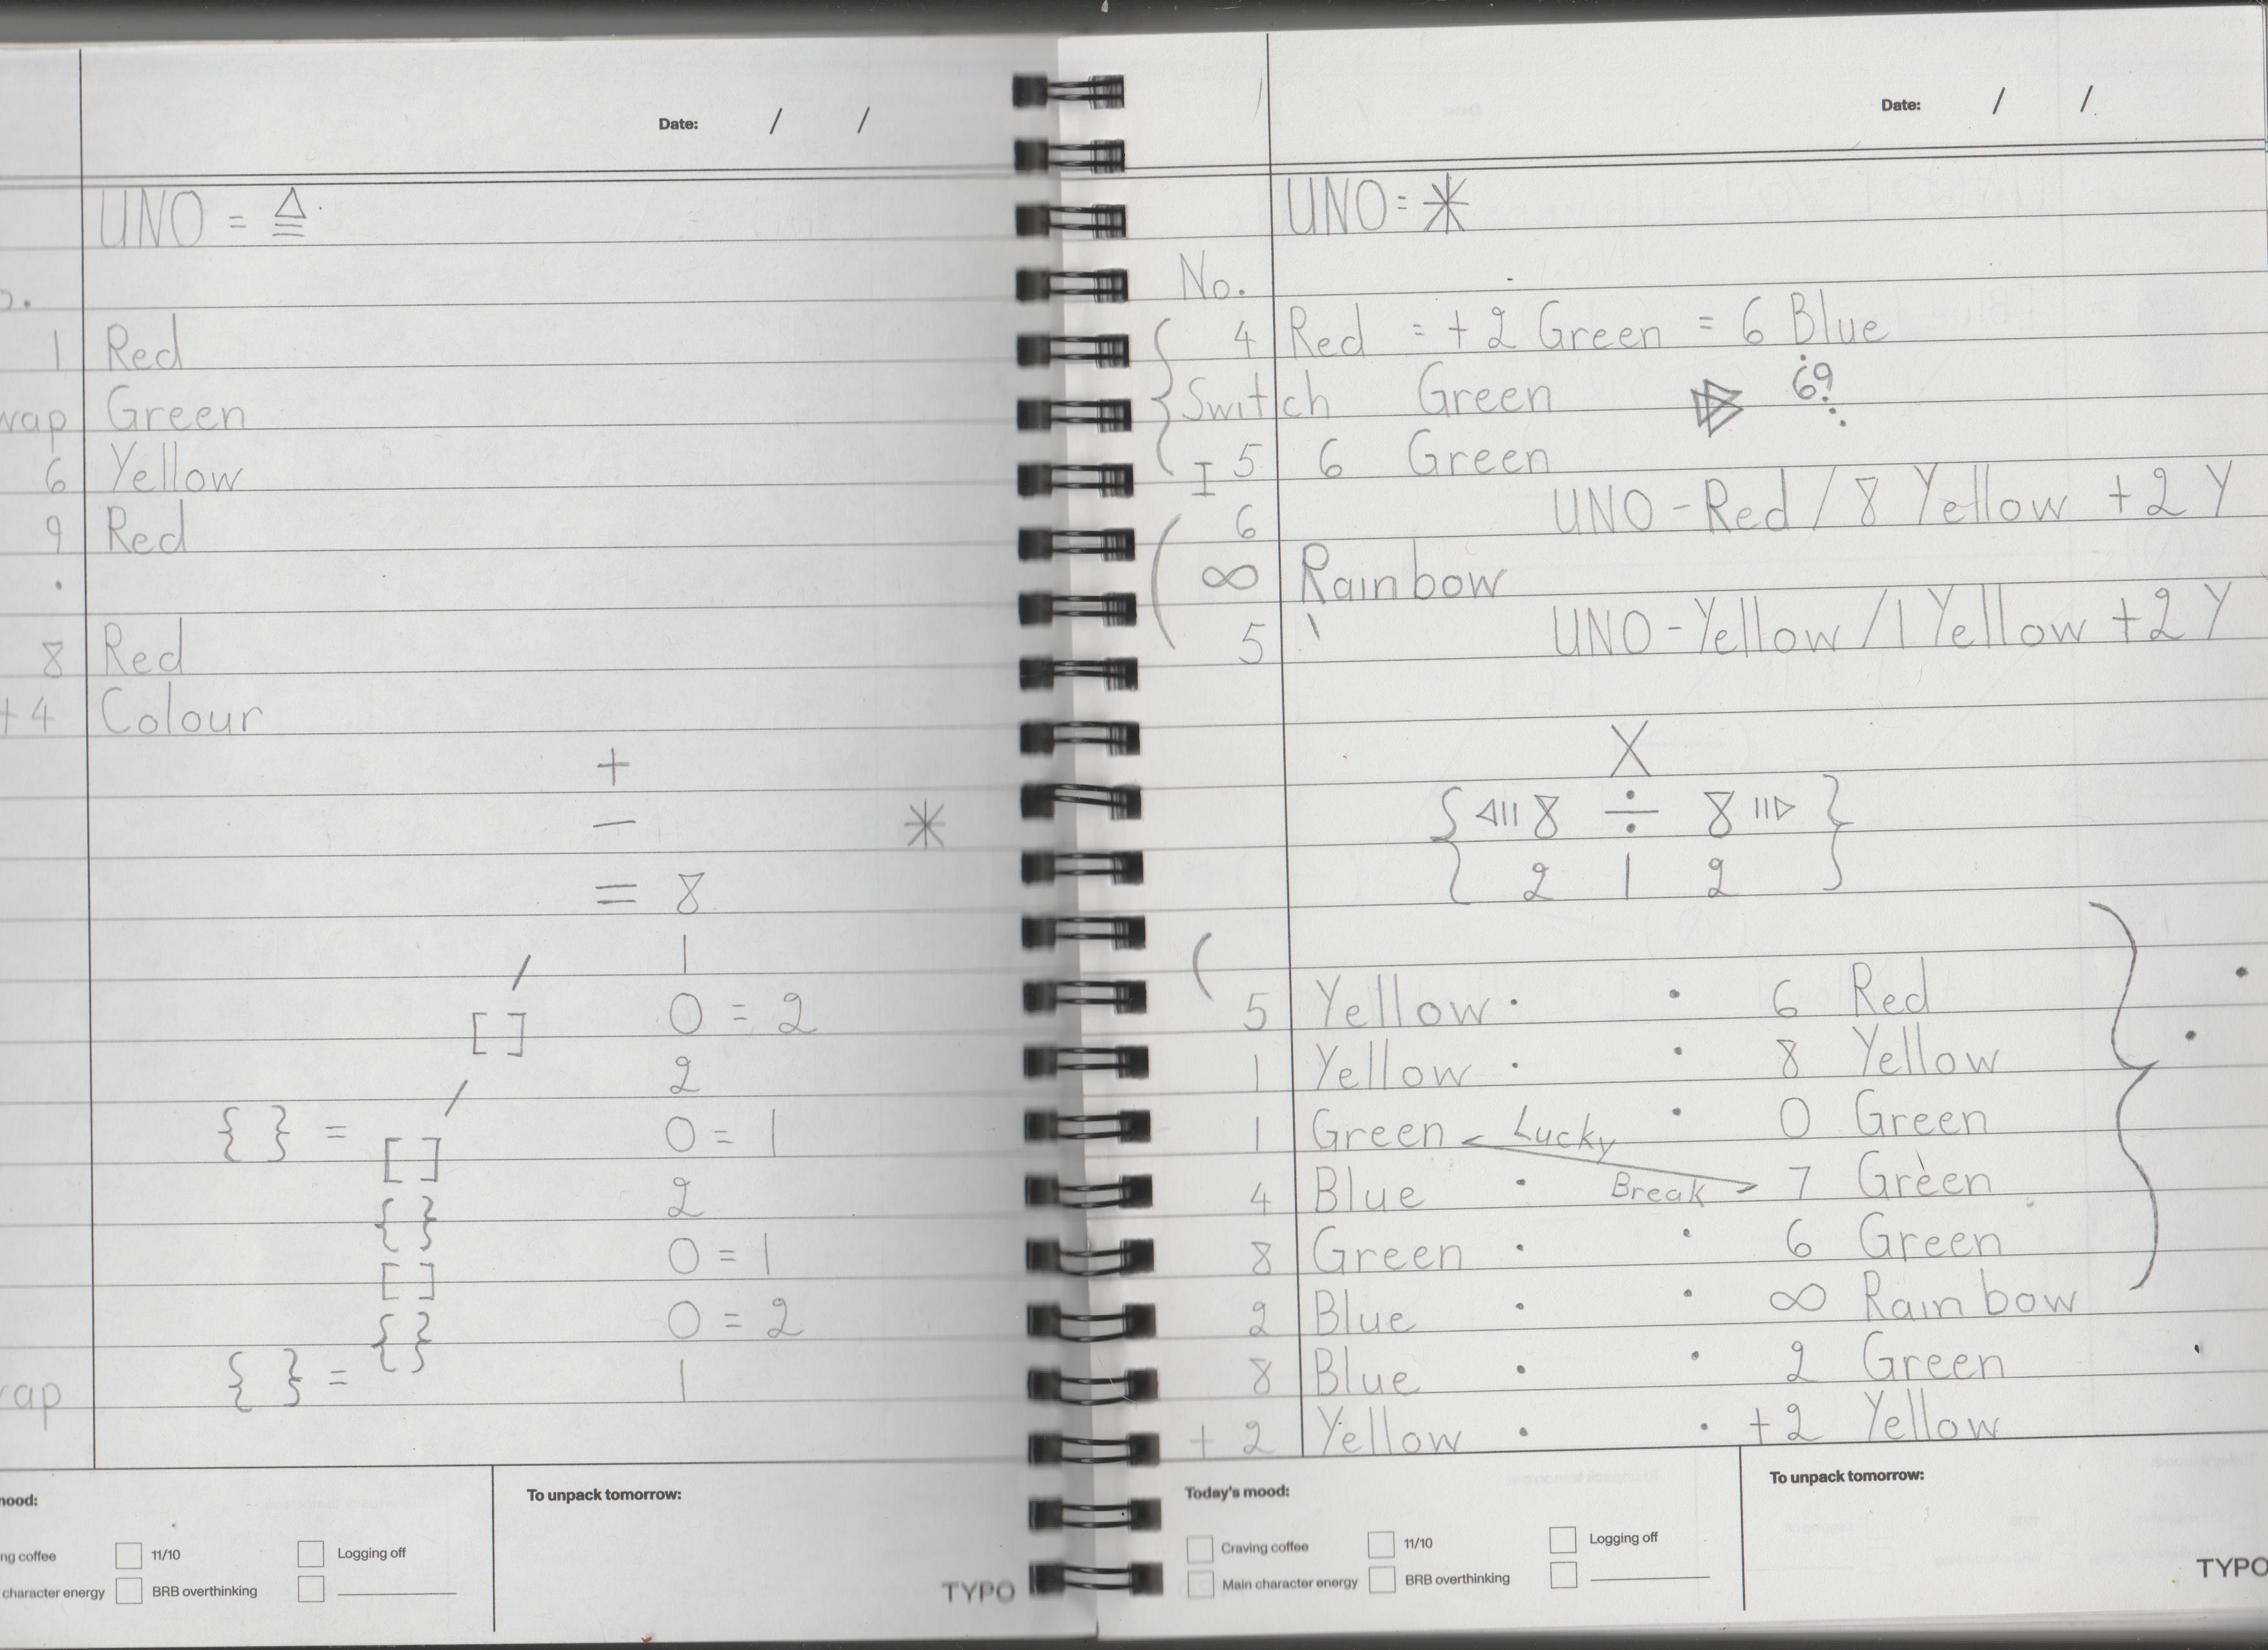 Date: / /
UNO = ≙
1 Red
Green
6 Yellow
9 Red
.
8 Red
+4 Colour
+
− *
= 8
1
/
[ ] 0 = 2
2
/
{ } = [ ] 0 = 1
{ } 2
[ ] 0 = 1
{ } 0 = 2
{ } = 1
To unpack tomorrow:
11/10
Logging off
character energy
BRB overthinking
TYPO
Date: / /
UNO = *
No.
4 Red = +2 Green = 6 Blue
Switch Green 69
I 5 6 Green
6 UNO - Red / 8 Yellow +2 Y
∞ Rainbow
5 UNO - Yellow / 1 Yellow +2 Y
X
{ ◁||| 8 ÷ 8 |||▷ }
2 1 2
(
5 Yellow · · 6 Red
1 Yellow · · 8 Yellow
1 Green < Lucky · 0 Green
4 Blue · Break > 7 Green
8 Green · · 6 Green
2 Blue · · ∞ Rainbow
8 Blue · · 2 Green
+2 Yellow · · +2 Yellow
Today's mood:
To unpack tomorrow:
Craving coffee
11/10
Logging off
Main character energy
BRB overthinking
TYPO